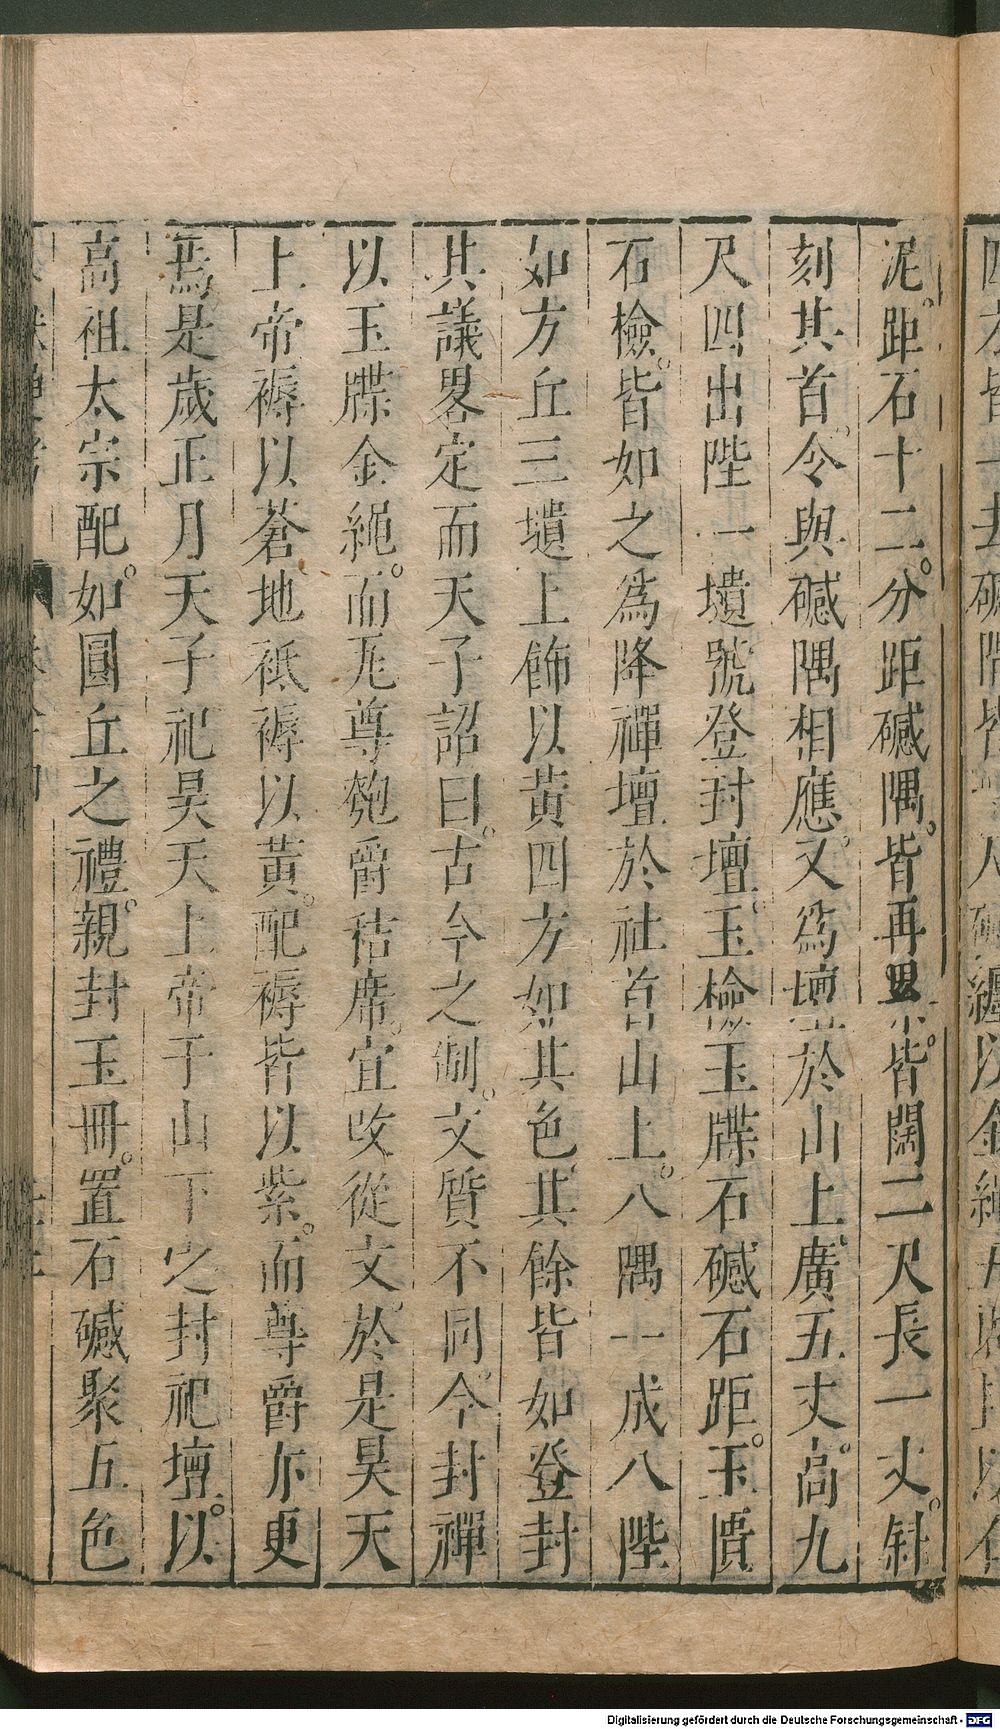 泥。距石十二。分距䃭隅。皆再累。皆闊二尺長一丈。斜
刻其首。令與䃭隅相應。又爲壇於山上。廣五丈。高九
尺四出陛一壝號登封壇。玉檢玉牒石䃭石距。玉匱
石檢。皆如之爲降禪壇於社首山上。八隅一成八陛
如方丘三壝上飾以黃四方如其色。其餘皆如登封
其議畧定而天子詔曰。古今之制。文質不同。今封禪
以玉牒金繩。而瓦尊匏爵秸席。宜改從文。於是昊天
上帝褥以蒼。地祗褥以黃。配褥皆以紫。而尊爵亦更
焉是歲正月天子祀昊天上帝于山下之封祀壇。以
高祖太宗配。如圓丘之禮。親封玉冊。置石䃭聚五色
Digitalisierung gefördert durch die Deutsche Forschungsgemeinschaft - DFG